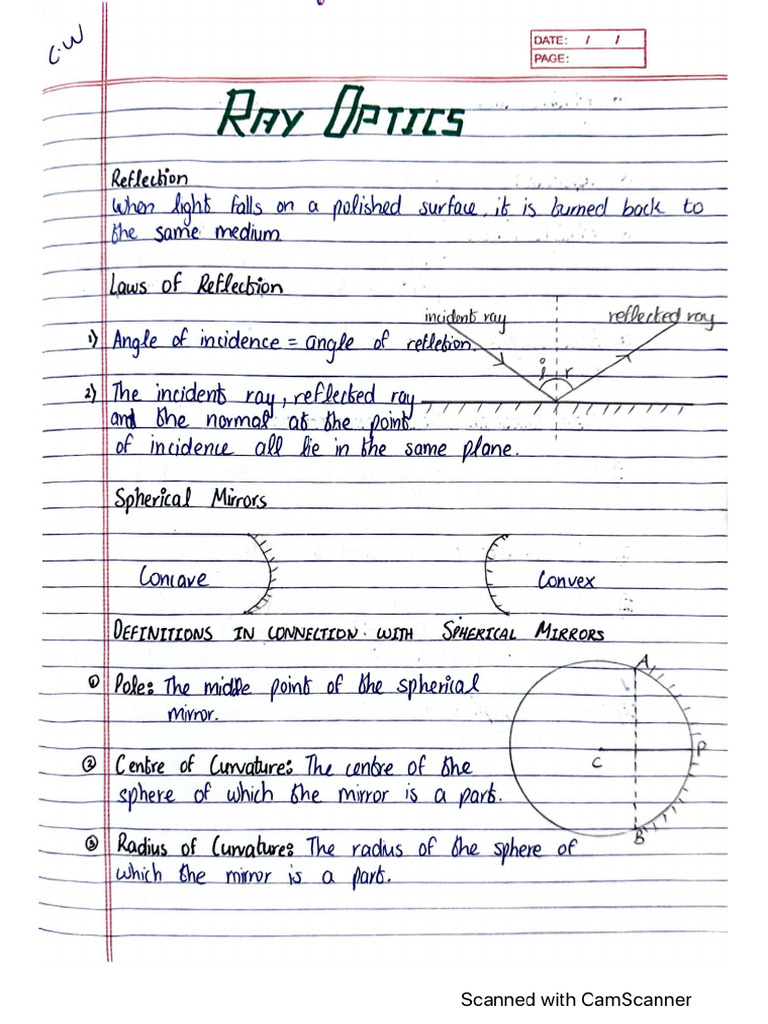 C.W
DATE: / /
PAGE:
RAY OPTICS
Reflection
When light falls on a polished surface, it is turned back to
the same medium.
Laws of Reflection
incident ray
reflected ray
1) Angle of incidence = angle of refletion.
i r
2) The incident ray, reflected ray
and the normal at the point
of incidence all lie in the same plane.
Spherical Mirrors
Concave
Convex
DEFINITIONS IN CONNECTION WITH SPHERICAL MIRRORS
A
① Pole: The middle point of the spherical
mirror.
P
C
② Centre of Curvature: The centre of the
sphere of which the mirror is a part.
B
③ Radius of Curvature: The radius of the sphere of
which the mirror is a part.
Scanned with CamScanner